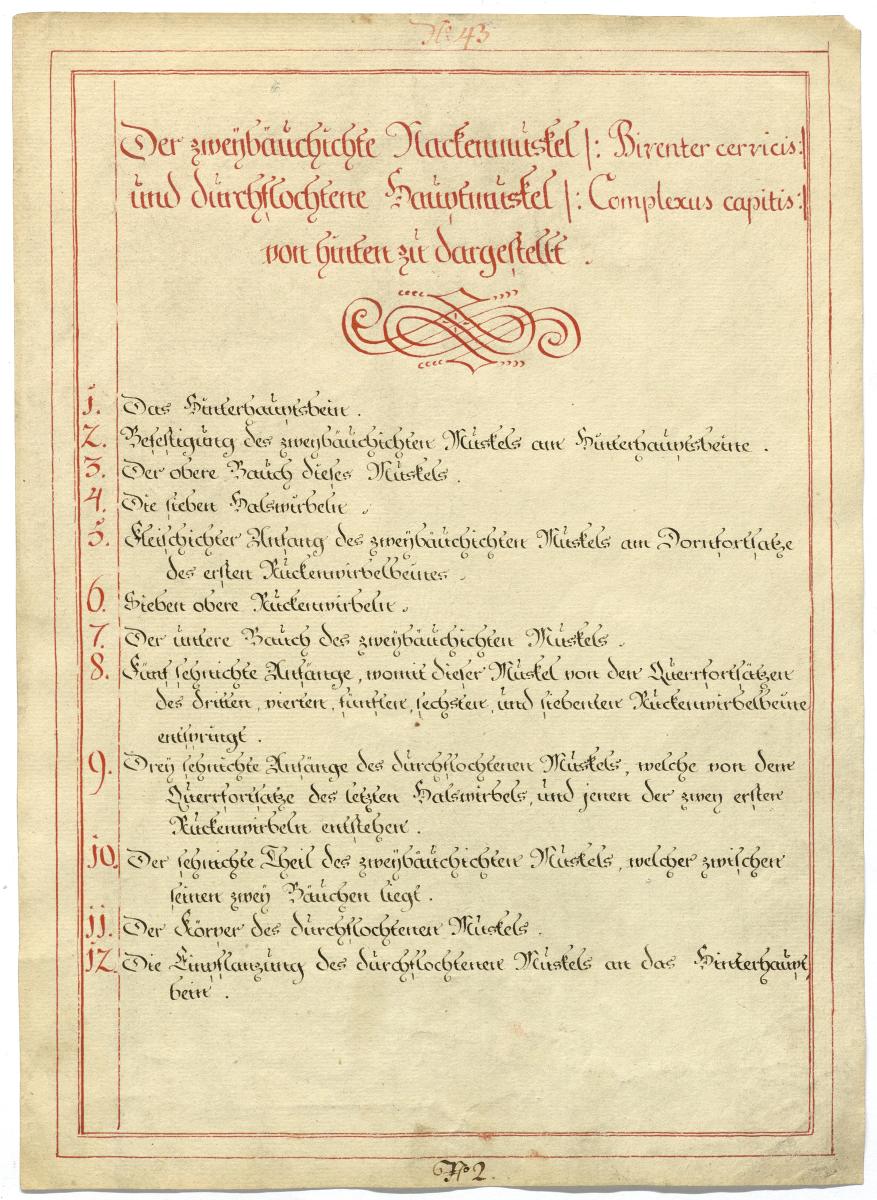 No. 43
Der zweÿbäuchichte Nackenmuskel /: Biventer cervicis :/
und durchflochtene Hauptmuskel /: Complexus capitis :/
von hinten zu dargestellt .
1. Das Hinterhauptsbein .
2. Befestigung des zweybäuchichten Muskels am Hinterhauptsbeine .
3. Der obere Bauch dieses Muskels .
4. Die sieben Halswirbeln .
5. Fleischichter Anfang des zweybäuchichten Muskels am Dornfortsatze
des ersten Rückenwirbelbeines .
6. Sieben obere Rückenwirbeln .
7. Der untere Bauch des zweybäuchichten Muskels .
8. Fünf sehnichte Anfänge, womit dieser Muskel von den Querrfortsätzen
des dritten, vierten, fünften, sechsten, und siebenten Rückenwirbelbeine
entspringt .
9. Drey sehnichte Anfänge des durchflochtenen Muskels, welche von dem
Querrfortsatze des letzten Halswirbels, und jenen der zwey ersten
Rückenwirbeln entstehen .
10. Der sehnichte Theil des zweybäuchichten Muskels, welcher zwischen
seinen zwey Bäuchen liegt .
11. Der Körper des durchflochtenen Muskels .
12. Die Einpflanzung des durchflochtenen Muskels an das Hinterhaupt
bein .
No 2.